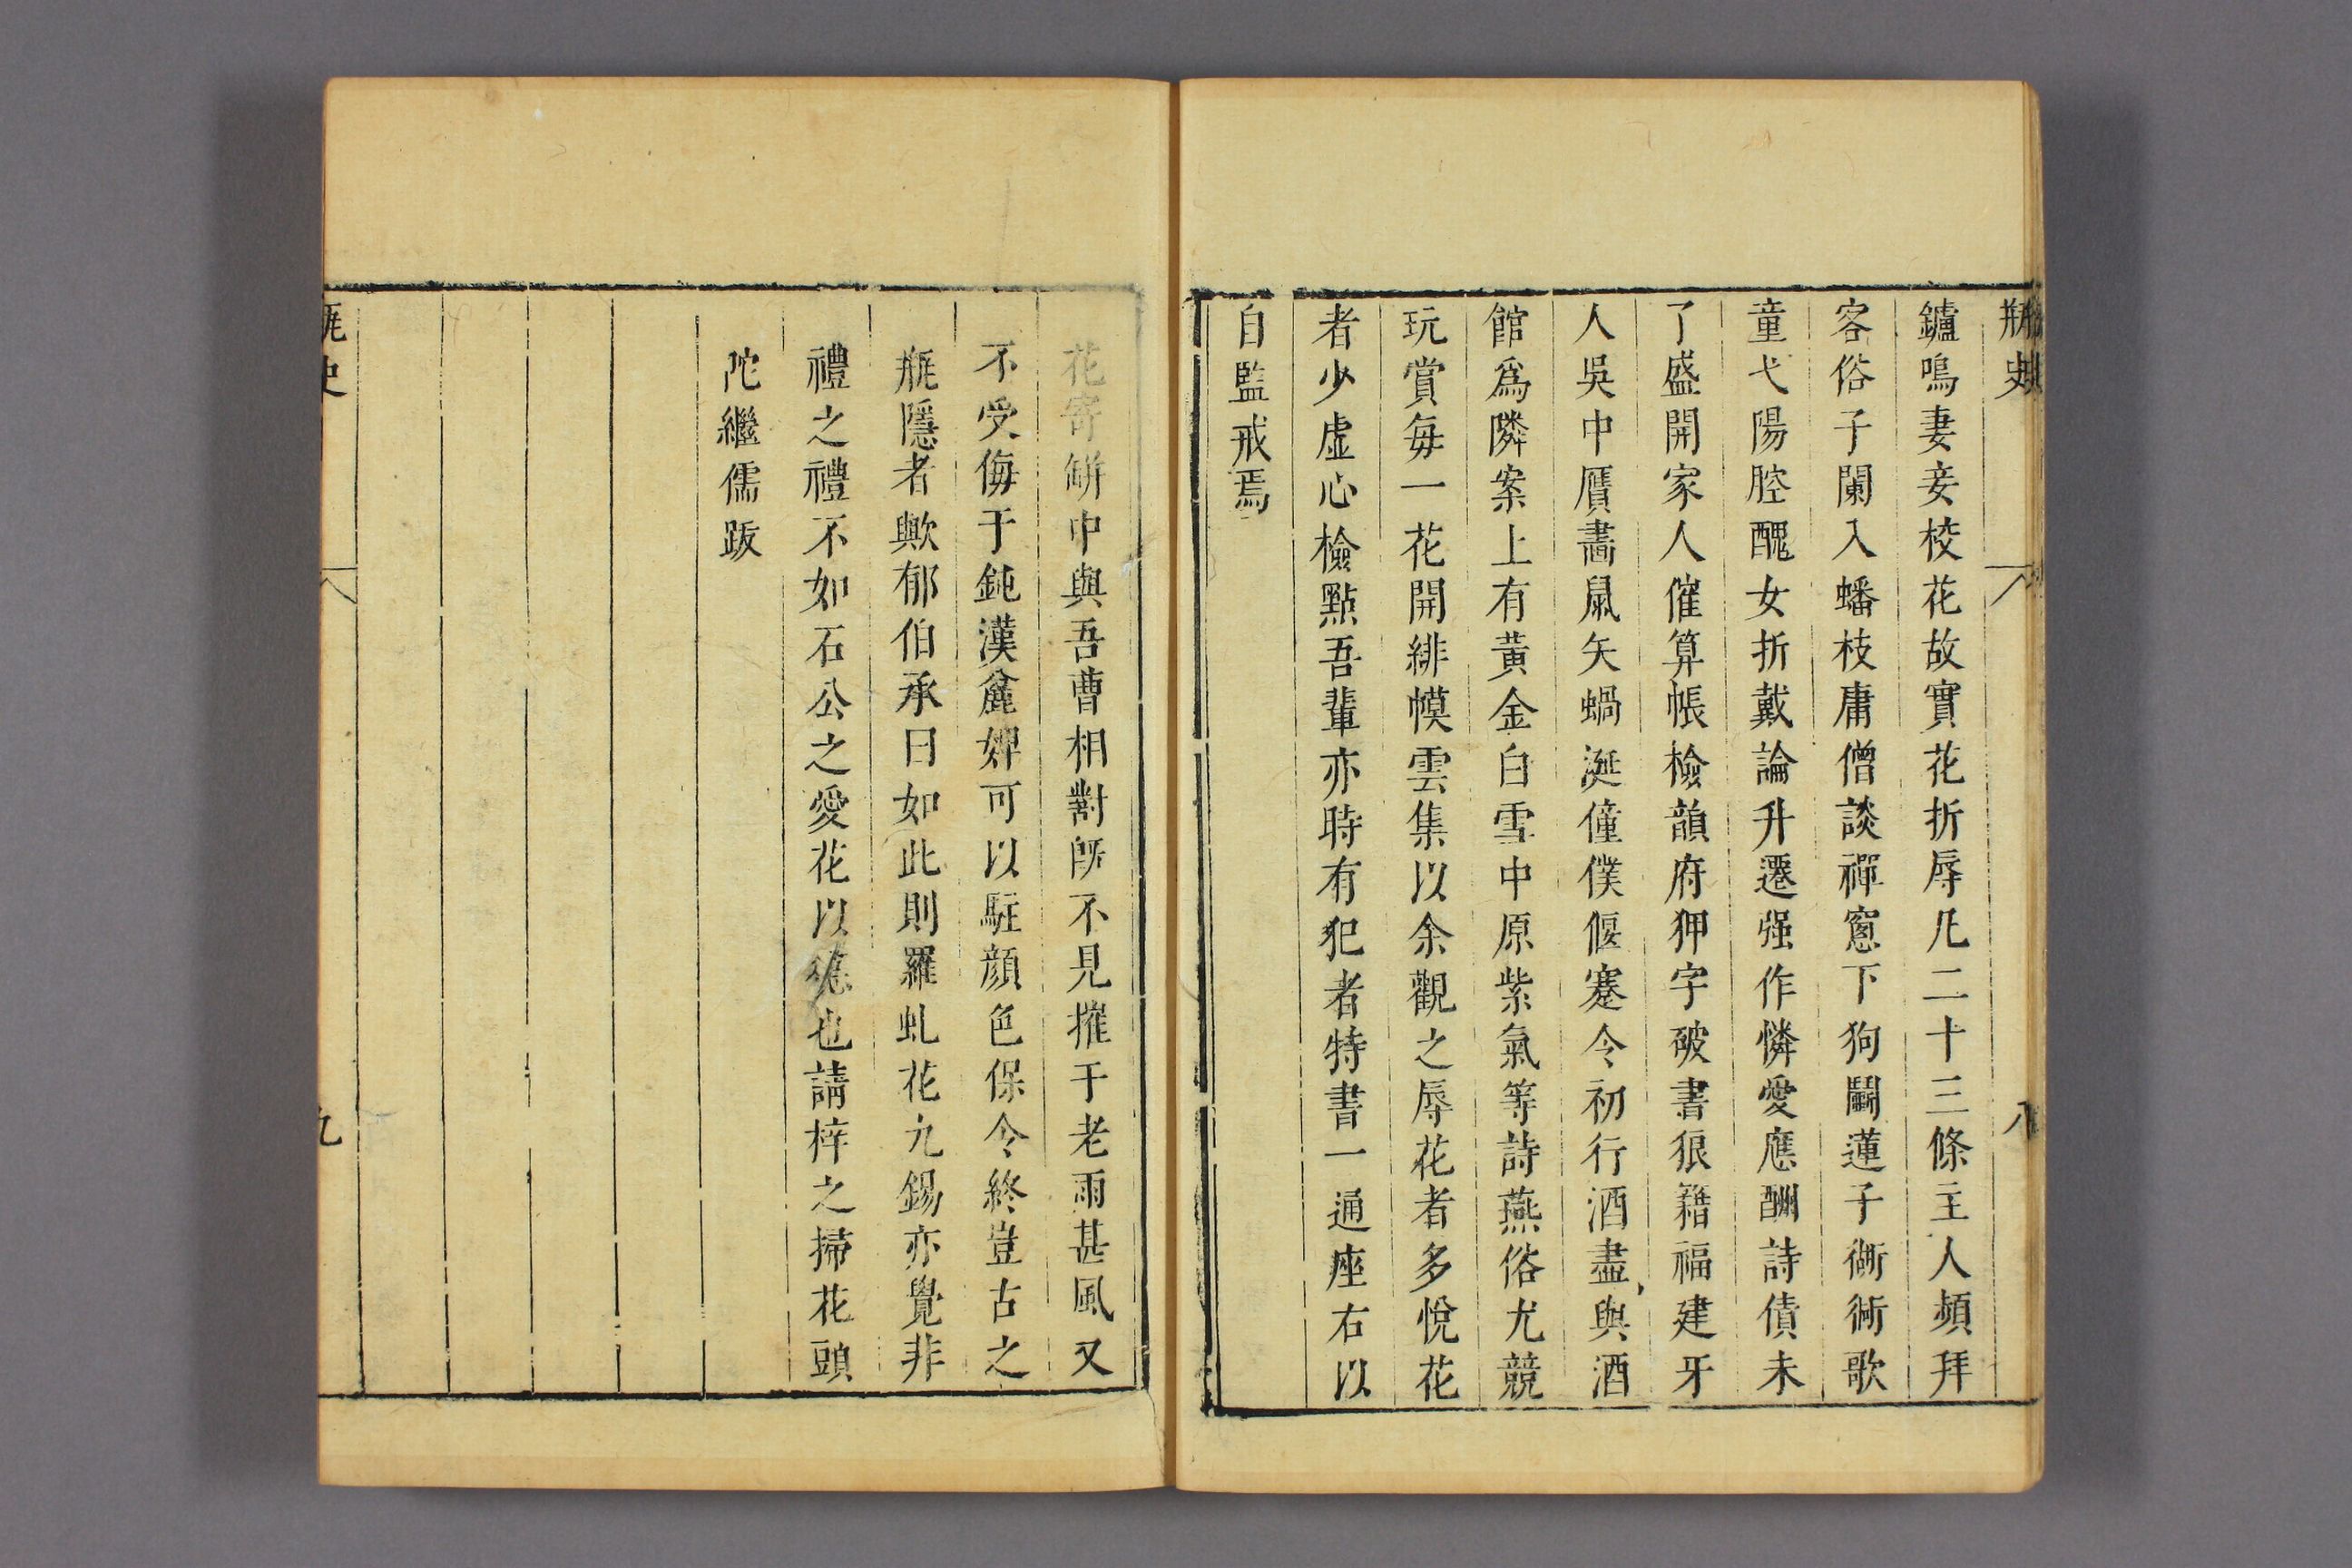 瓶史 八
鑪鳴妻妾校花故實花折辱凡二十三條主人頻拜
客俗子闌入蟠枝庸僧談禪窻下狗鬭蓮子衚衕歌
童弋陽腔醜女折戴論升遷强作憐愛應酬詩債未
了盛開家人催算帳檢韻府押字破書狼籍福建牙
人吳中贋畫鼠矢蝸涎僮僕偃蹇令初行酒盡與酒
館爲隣案上有黃金白雪中原紫氣等詩燕俗尤競
玩賞每一花開緋幙雲集以余觀之辱花者多悅花
者少虛心檢點吾輩亦時有犯者特書一通座右以
自監戒焉
花寄缾中與吾曹相對旣不見摧于老雨甚風又
不受侮于鈍漢麄婢可以駐顔色保令終豈古之
瓶隱者歟郁伯承曰如此則羅虬花九錫亦覺非
禮之禮不如石公之愛花以德也請梓之掃花頭
陀繼儒跋
瓶史 九